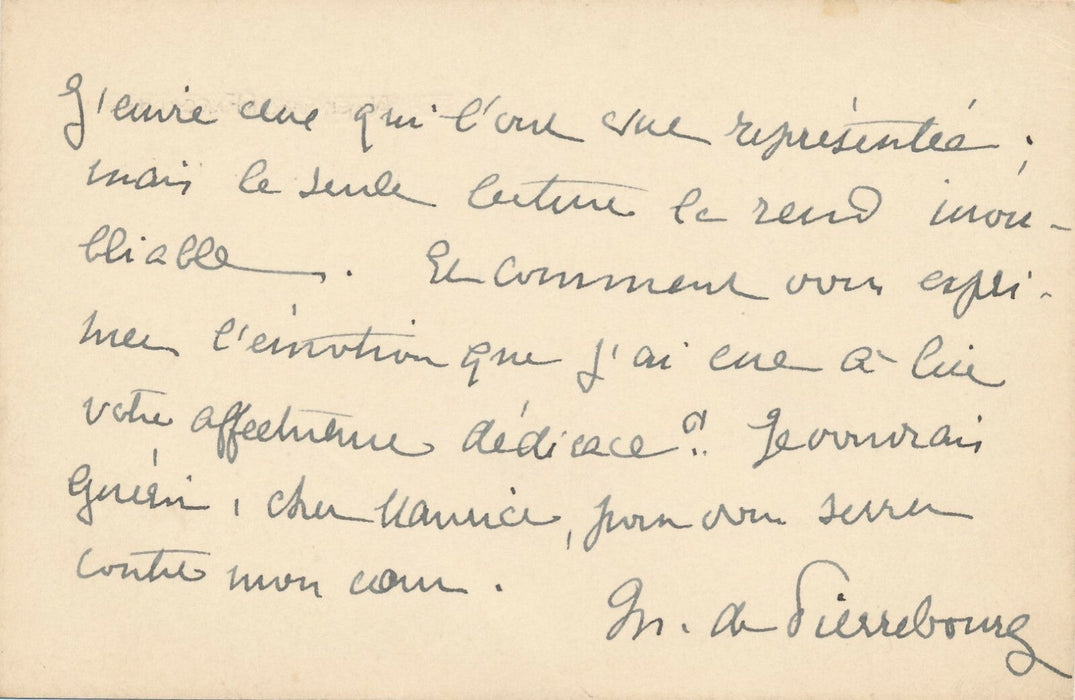 J'envie ceux qui l'ont vue représentée ;
mais la seule lecture la rend inou-
bliable. Et comment vous expri-
mer l'émotion que j'ai eue à lire
votre affectueuse dédicace ?. Je voudrais
guérir, cher Maurice, pour vous serrer
contre mon cœur.
M. de Pierrebourg